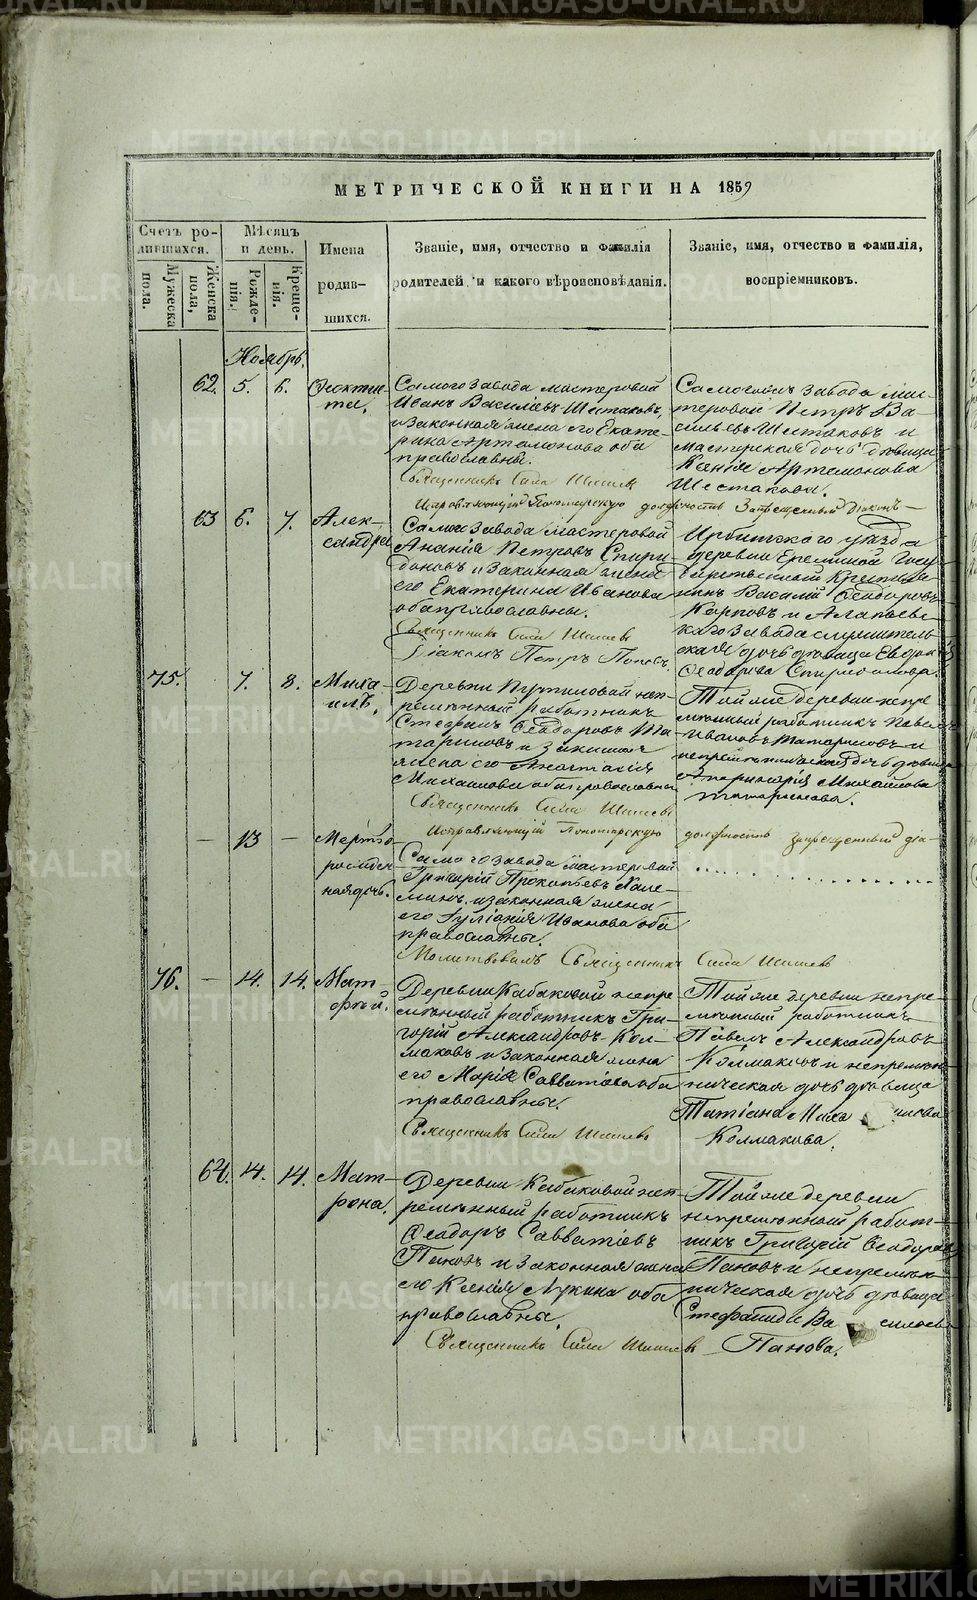 МЕТРИЧЕСКОЙ КНИГИ НА 1859
Счетъ ро-
дившихся.
Мужеска
пола.
Женска
пола,
Мѣсяцъ
и день.
Рожде-
нія.
Креще-
нія.
Имена
родив-
шихся.
Званіе, имя, отчество и фамилія
родителей и какого вѣроисповѣданія.
Званіе, имя, отчество и фамилія,
воспріемниковъ.
Ноябрь.
62. 5. 6.
Ѳеокти-
ста.
Самого завода мастеровой
Иванъ Василіевъ Шестаковъ,
и законная жена его Екате-
рина Артамонова оба
православны.
Священникъ Сила Шишевъ
Самого завода Мас-
теровой Петръ Ва-
сильевъ Шестаковъ и
мастерская дочь дѣвица
Ксенія Артемонова
Шестакова.
Исправляющій Пономарскую должность Запрещенный Діаконъ
63 6. 7.
Алек-
сандра
Самого завода мастеровой
Ананія Петровъ Спири-
доновъ и законная жена
его Екатерина Иванова
оба православны.
Священникъ Сила Шишевъ
Діаконъ Петръ Поповъ.
Ирбитскаго уѣзда
деревни Ереминой Госу-
дарственный Крестья-
нинъ Василій Ѳеодоровъ
Карповъ и Алапаевс-
каго завода
дочь дѣвица Евдокія
Ѳеодорова Спиридонова.
75. 7. 8.
Миха-
илъ.
Деревни Путиловой неп-
ремѣнный работникъ
Стефанъ Ѳеодоровъ Та-
тариновъ и законная
жена его Анастасія
Михайлова оба православны
Священникъ Сила Шишевъ
Той же деревни непре-
мѣнный работникъ Павелъ
Ивановъ Татариновъ и
непремѣнническая дочь дѣвица
Михайлова
Татаринова.
Исправляющій Пономарскую должность запрещенный діа-
— 13 —
Мертво-
рожден-
ная дочь.
Самого завода мастеровой
Григорій Прокопьевъ
и законная жена
его Іуліанія Иванова оба
православны.
Молитвовалъ Священникъ Сила Шишевъ
76. — 14. 14.
Мат-
ѳей.
Деревни Кабаковой непре-
мѣнный работникъ Гри-
горій Александровъ Кол-
маковъ и законная жена
его Марія Савватіева оба
православны.
Священникъ Сила Шишевъ
Той же деревни непре-
мѣнный работникъ
Павелъ Александровъ
Колмаковъ и непремѣн-
ническая дочь дѣвица
Татіана Миха илова
Колмакова.
64. 14. 14.
Мат-
рона.
Деревни Кабаковой неп-
ремѣнный работникъ
Ѳеодоръ Савватіевъ
Пановъ и законная жена
его Ксенія Лукина оба
православны.
Священникъ Сила Шишевъ
Той же деревни
непремѣнный работ-
никъ Григорій Ѳеодоровъ
Пановъ и непремѣн-
ническая дочь дѣвица
Стефанида Ва сильева
Панова.
METRIKI.GASO-URAL.RU